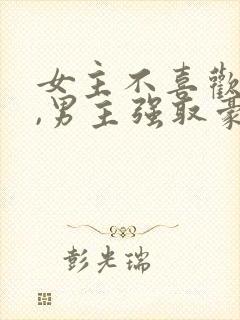 女主不喜歡
,男主强取豪
彭光瑞